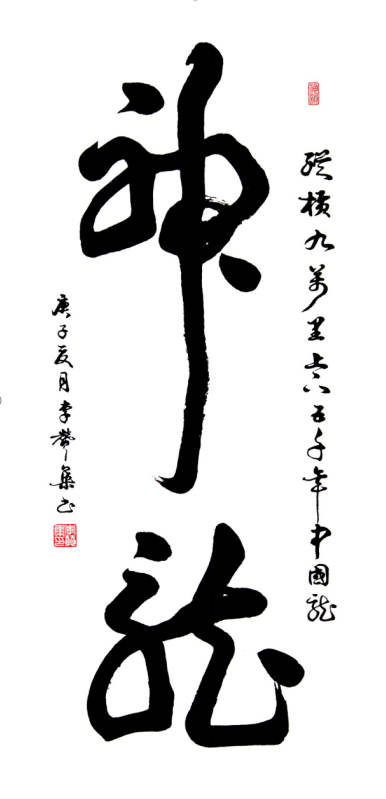 縱橫九萬里上下五千年中國龍
神龍
庚子夏月李集书